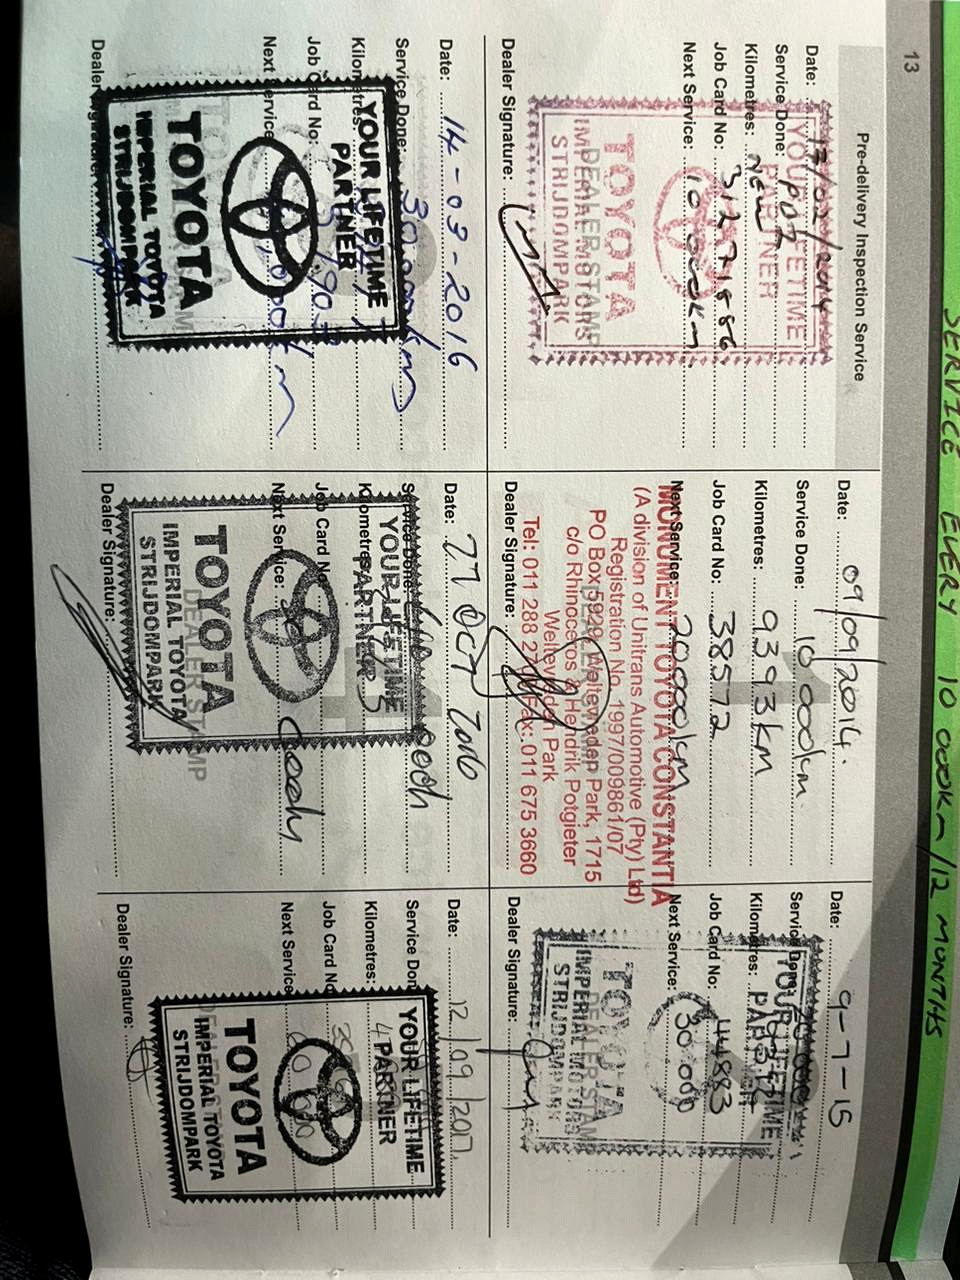 SERVICE EVERY 10 000km/12 MONTHS
13
Pre-delivery Inspection Service
Date: 17/02/2014
Service Done: PDI
Kilometres: New
Job Card No:
Next Service: 10 000km
Dealer Signature:
YOUR LIFETIME
PARTNER
TOYOTA
IMPERIAL MOTORS
STRIJDOMPARK
DEALER STAMP
Date: 09/09/2014.
Service Done: 10 000km.
Kilometres: 9393km
Job Card No: 38572
Next Service: 20000km
Dealer Signature:
MONUMENT TOYOTA CONSTANTIA
(A division of Unitrans Automotive (Pty) Ltd)
Registration No. 1997/009861/07
PO Box 5929, Weltevreden Park, 1715
c/o Rhinoceros & Hendrik Potgieter
Weltevreden Park
Fax: 011 675 3660
Date: 9-7-15
Service Done:
Kilometres:
Job Card No: 44883
Next Service: 30 000
Dealer Signature:
YOUR LIFETIME
PARTNER
TOYOTA
IMPERIAL MOTORS
STRIJDOMPARK
DEALER STAMP
Date: 14-03-2016
Service Done: 30 000km
Kilometres:
Job Card No:
Next Service:
Dealer Signature:
YOUR LIFETIME
PARTNER
TOYOTA
IMPERIAL TOYOTA
STRIJDOMPARK
Date: 27 OCT 2016
Service Done:
Kilometres:
Job Card No:
Next Service:
Dealer Signature:
YOUR LIFETIME
PARTNER
TOYOTA
IMPERIAL TOYOTA
STRIJDOMPARK
DEALER STAMP
Date: 12/09/2017.
Service Done:
Kilometres:
Job Card No:
Next Service: 60 000
Dealer Signature:
YOUR LIFETIME
PARTNER
TOYOTA
IMPERIAL TOYOTA
STRIJDOMPARK